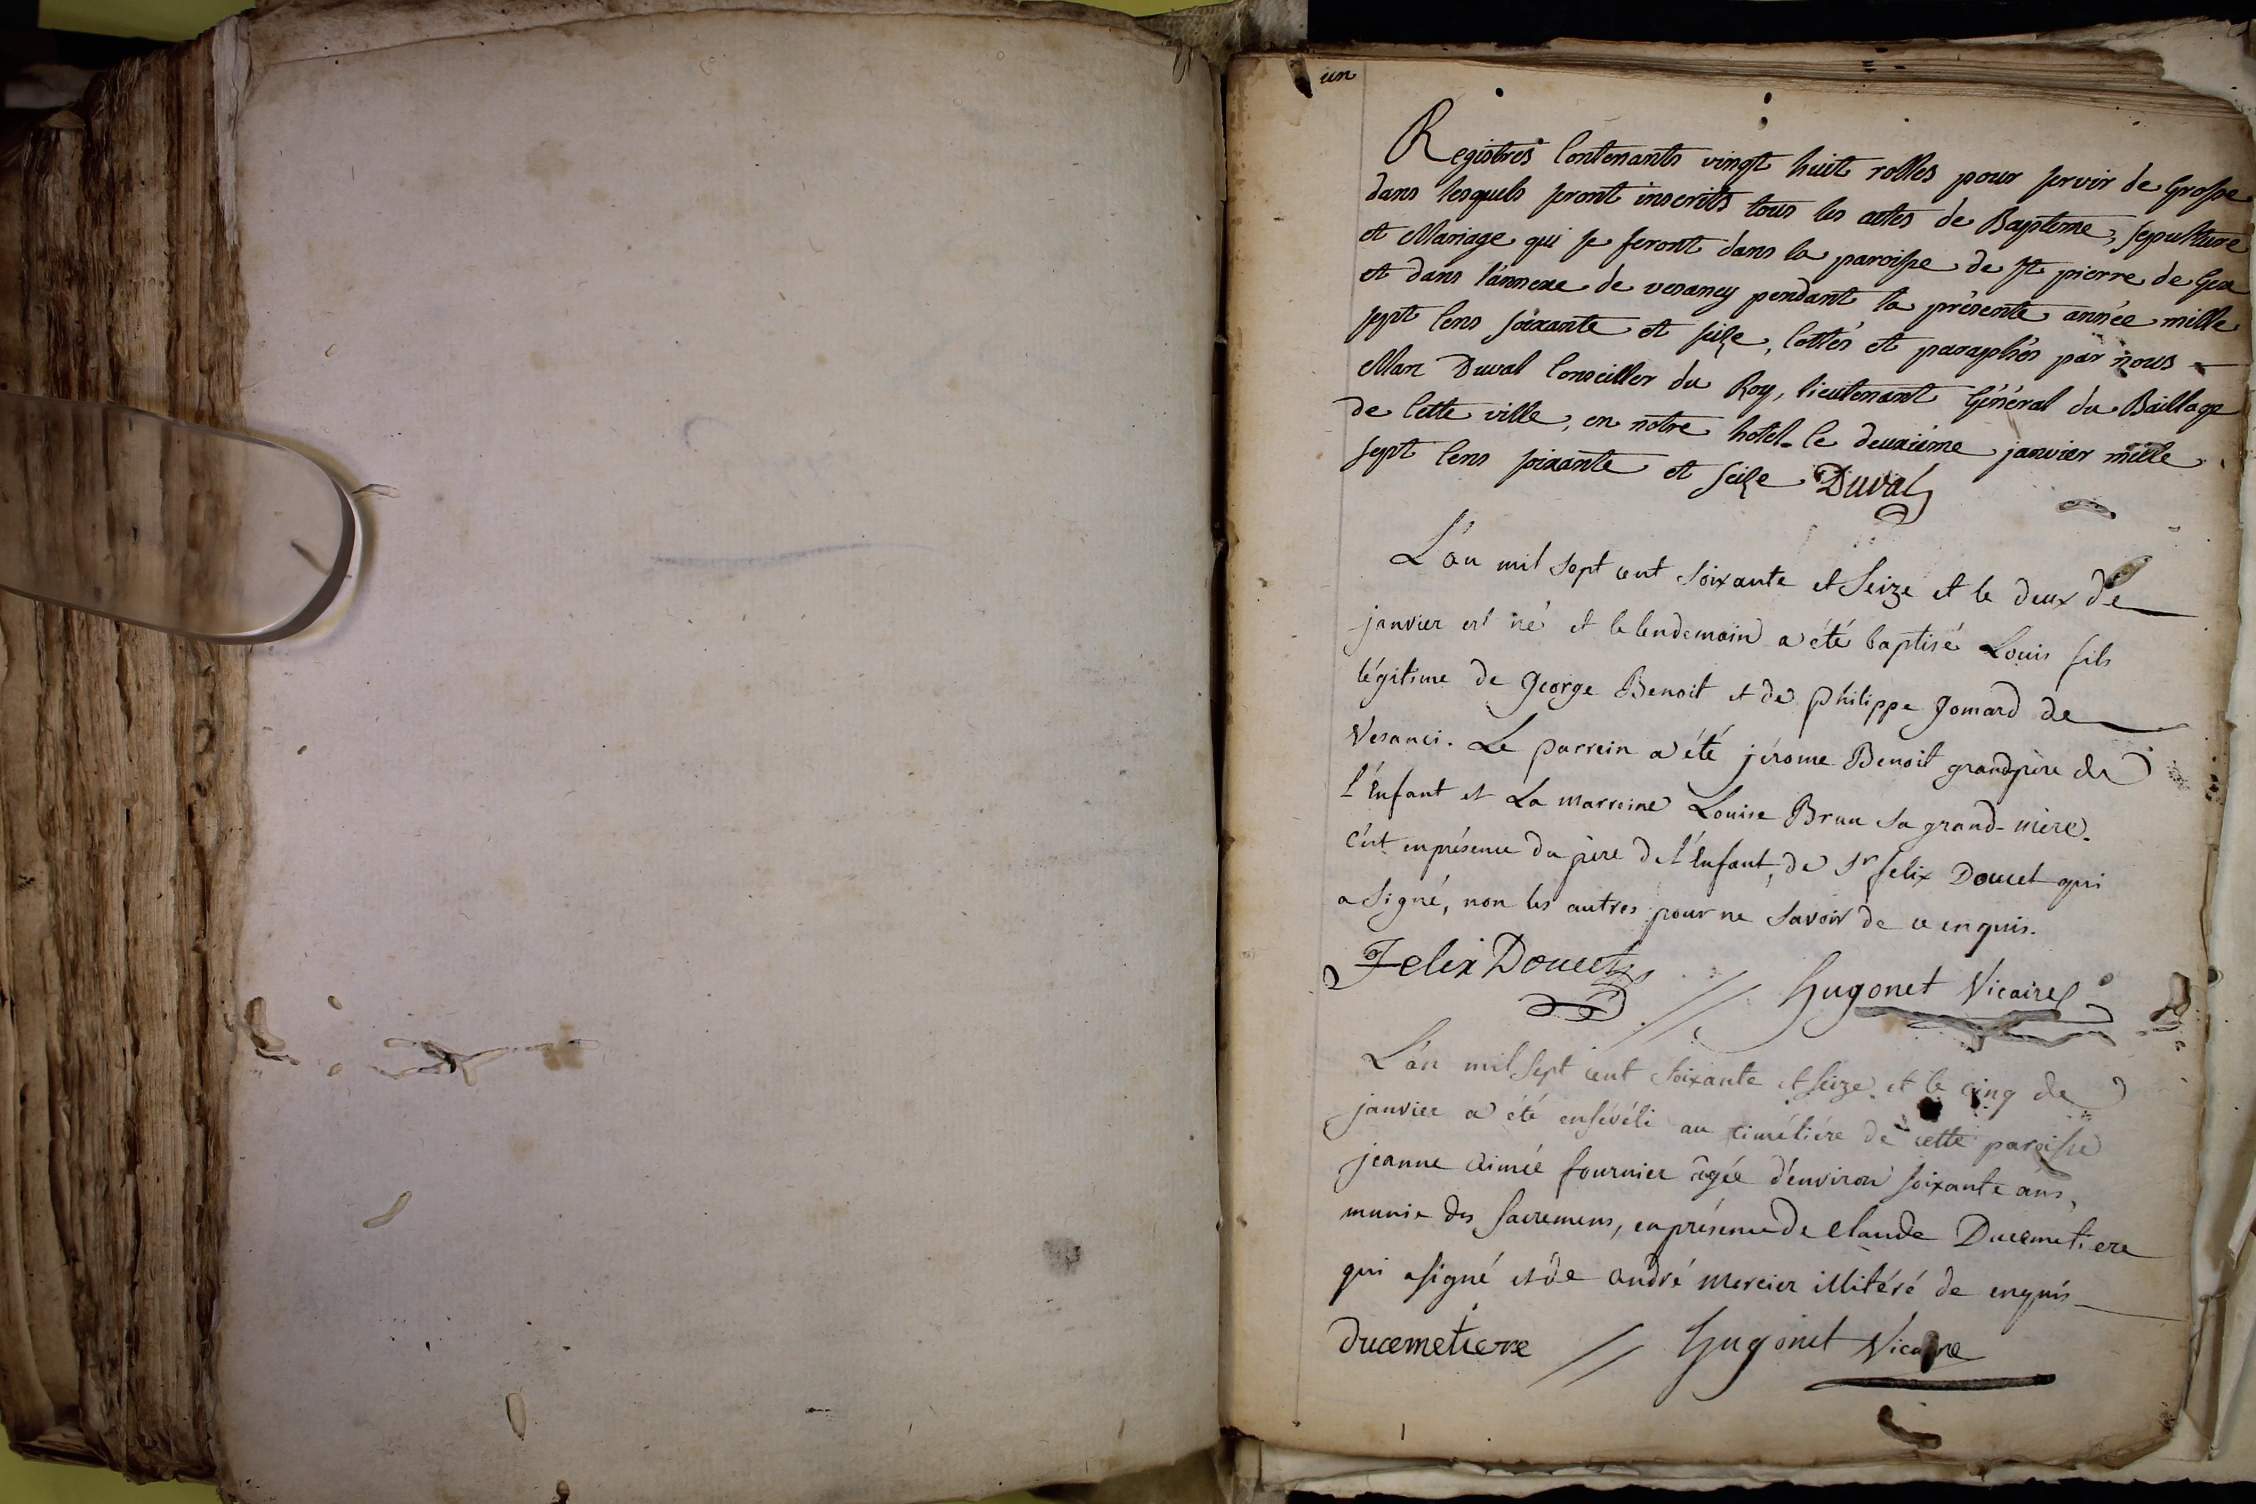 un
Registres Contenants vingt huit rolles pour servir de Grosse
dans lesquels seront inscrits tous les actes de Baptême, sepulture
et Mariage qui se feront dans la paroisse de St pierre de Gex
et dans l'annexe de vesancy pendant la présente année mille
sept Cens soixante et seize, Cottés et paraphés par nous
Marc Duval Conseiller du Roy, lieutenant Général du Baillage
de Cette ville, en notre hotel le deuxiéme janvier mille
sept Cens soixante et seize Duval
L'an mil sept cent soixante et Seize et le deux de
janvier est né et le lendemain a été baptisé Louis fils
légitime de George Benoit et de philippe Jomard de
Vesanci. Le parrein a été jérome Benoit grandpère de
l'Enfant et La marreine Louise Brun sa grand-mère.
C'est en présence du père de l'Enfant, de Sr felix Doucet qui
a Signé, non les autres pour ne savoir de ce enquis.
Felix Doucet Hugonet Vicaire
L'an mil Sept cent soixante et seize et le cinq de
janvier a été enséveli au cimétiére de cette paroisse
jeanne aimée fournier âgée d'environ soixante ans,
munie des sacremens, en présence de claude Ducemetiere
qui a signé et de andré mercier illitéré de enquis
Ducemetiere Hugonet Vicaire